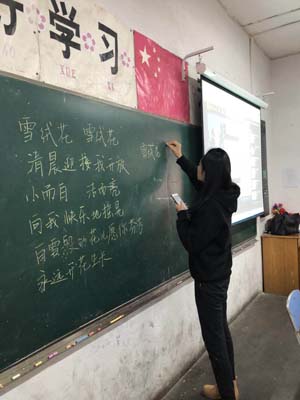 学习
XUE XI
雪绒花 雪绒花
清晨迎接我开放
小而白 洁而亮
向我快乐地摇晃
白雪般的花儿愿你芬芳
永远开花生长
雪绒花